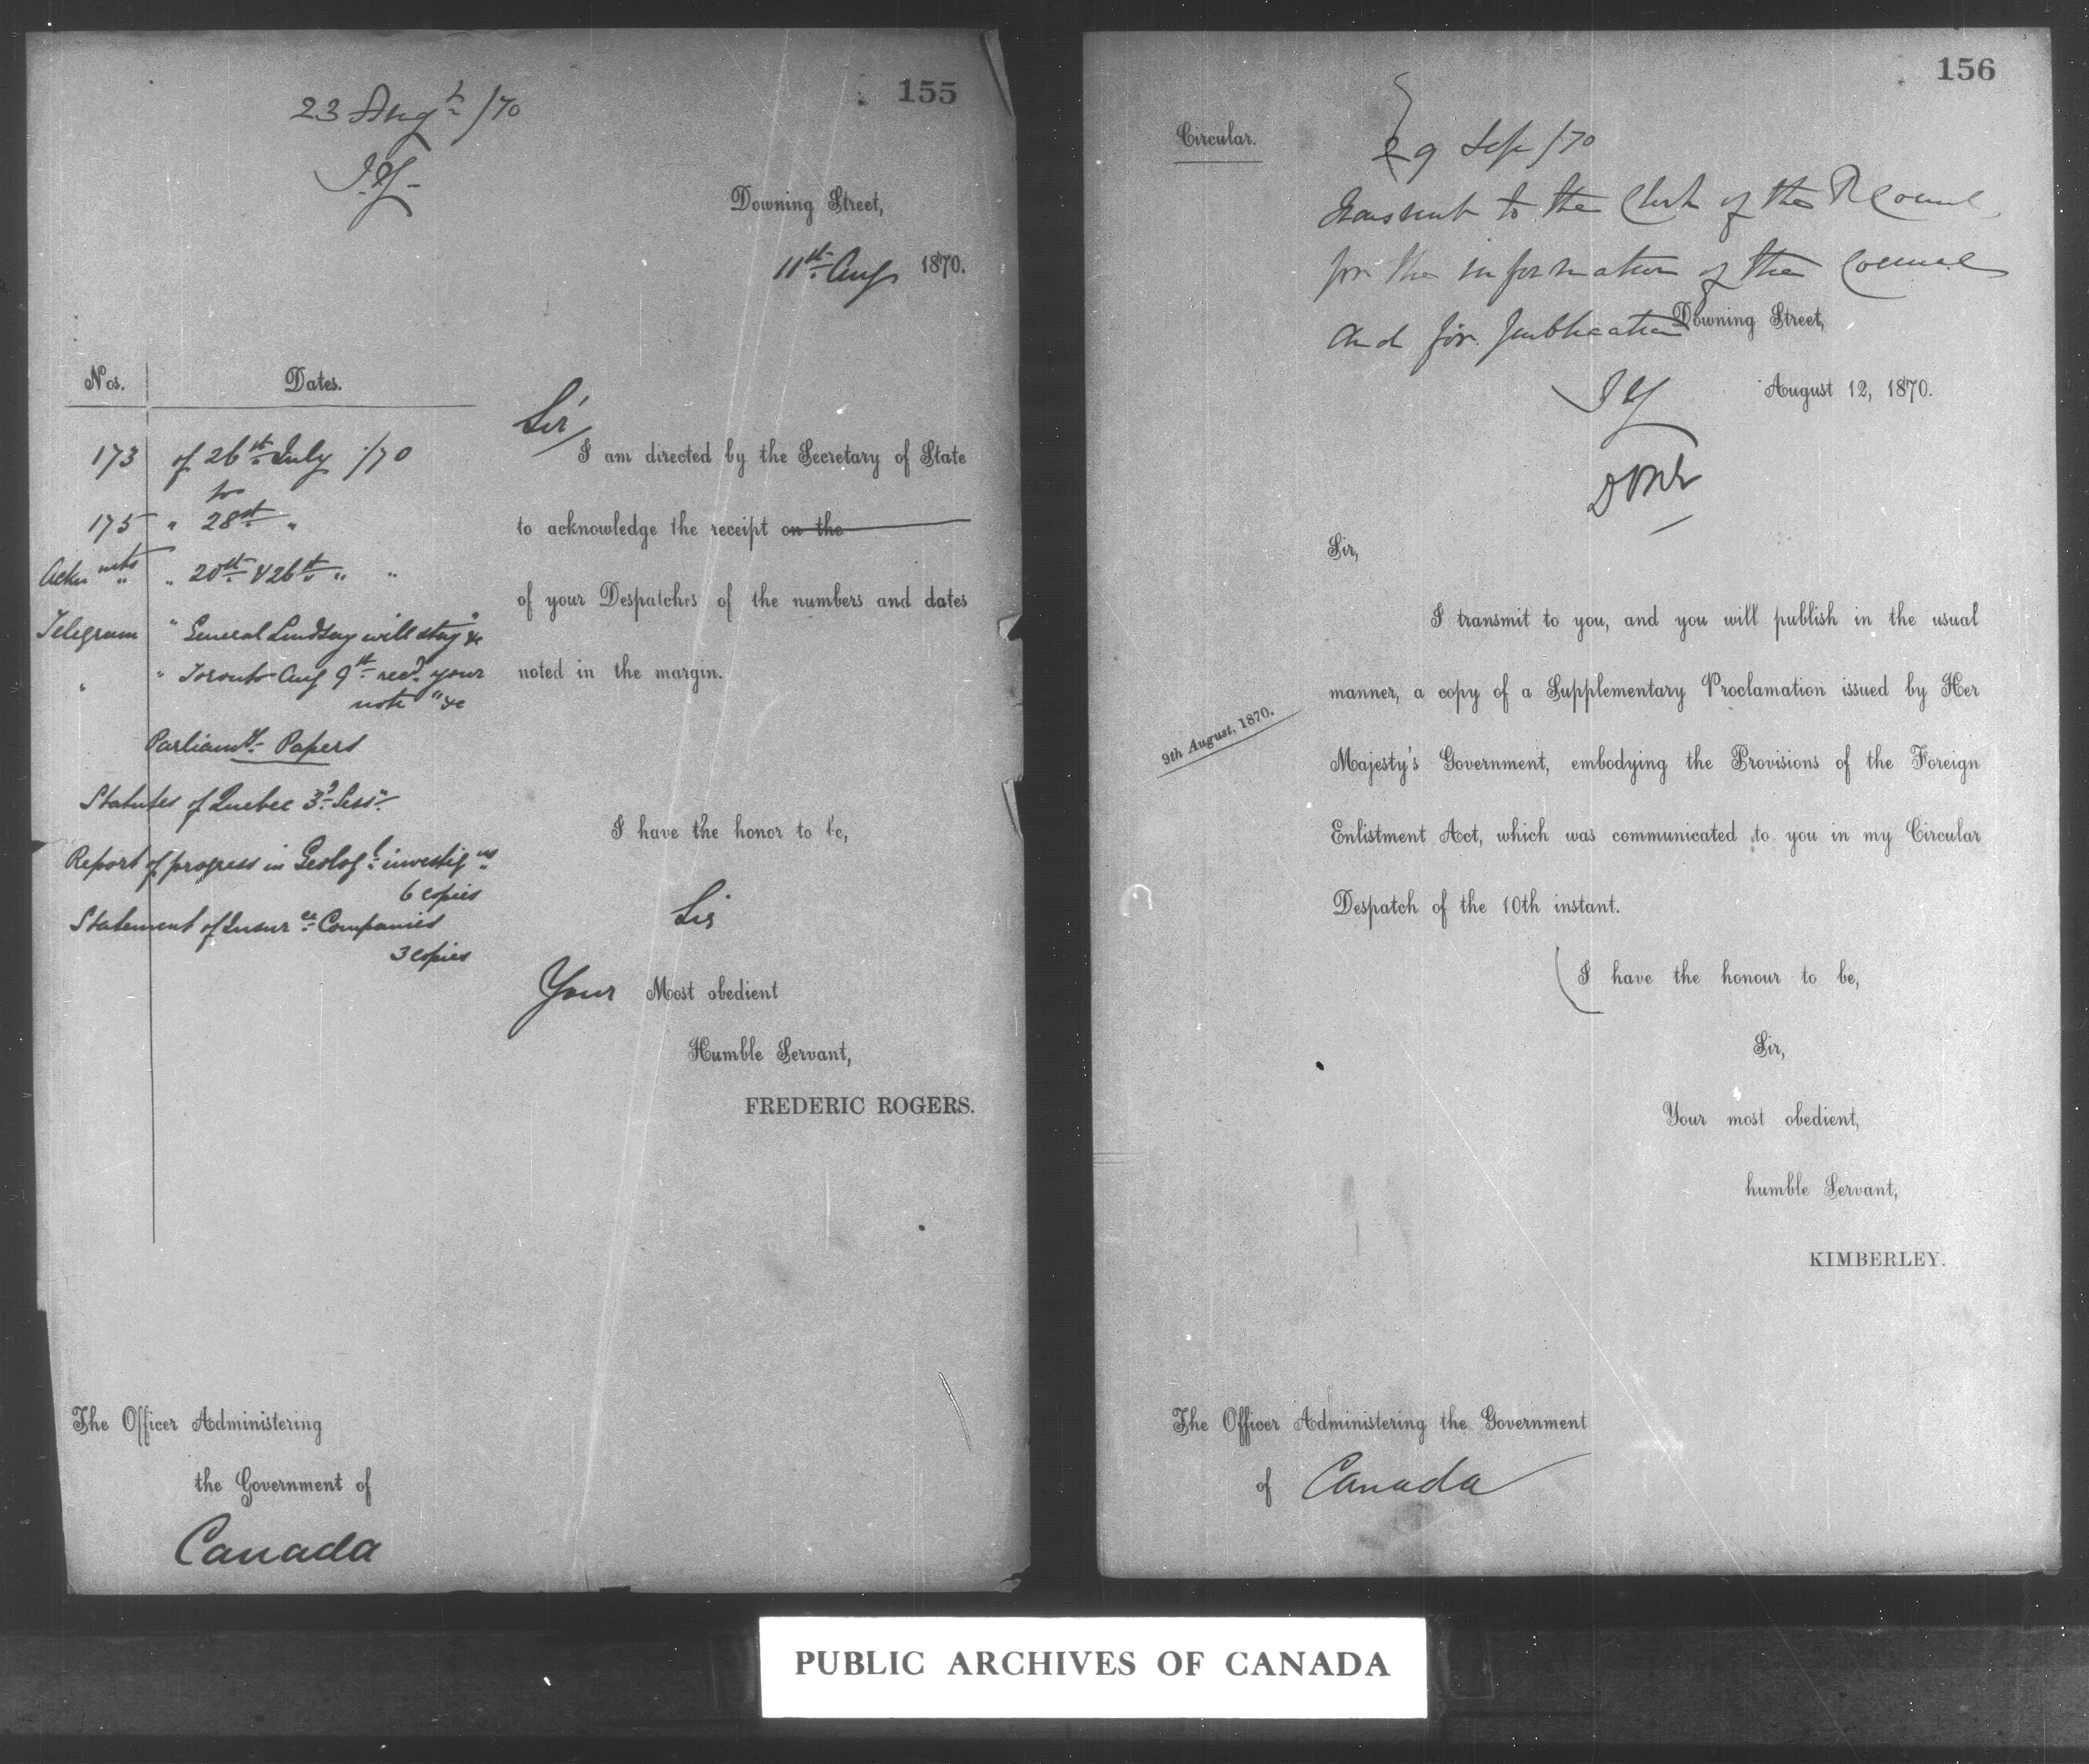 155
23 Aug /70
J.Y.
Downing Street,
11st Aug 1870.
Nos. Dates.
173 of 26st July /70
to
175 " 28st "
Ackn mts " 20st & 26st " "
Telegram " General Lindsay will stay" &c
" " Toronto Aug 9st recd. your
note" &c
Parliamy. Papers
Statutes of Quebec 3d. Sessn.
Report of progress in Geologl. investigns.
6 copies
Statement of Insurce. Companies
3 copies
Sir
I am directed by the Secretary of State
to acknowledge the receipt on the
of your Despatches of the numbers and dates
noted in the margin.
I have the honor to be,
Sir
Your Most obedient
Humble Servant,
FREDERIC ROGERS.
The Officer Administering
the Government of
Canada
156
Circular.
29 Sep /70
Transmit to the Clerk of the P Council
for the information of the Council
and for publication
J Y
Downing Street,
August 12, 1870.
Sir,
I transmit to you, and you will publish in the usual
manner, a copy of a Supplementary Proclamation issued by Her
9th August, 1870.
Majesty's Government, embodying the Provisions of the Foreign
Enlistment Act, which was communicated to you in my Circular
Despatch of the 10th instant.
I have the honour to be,
Sir,
Your most obedient,
humble Servant,
KIMBERLEY.
The Officer Administering the Government
of Canada
PUBLIC ARCHIVES OF CANADA